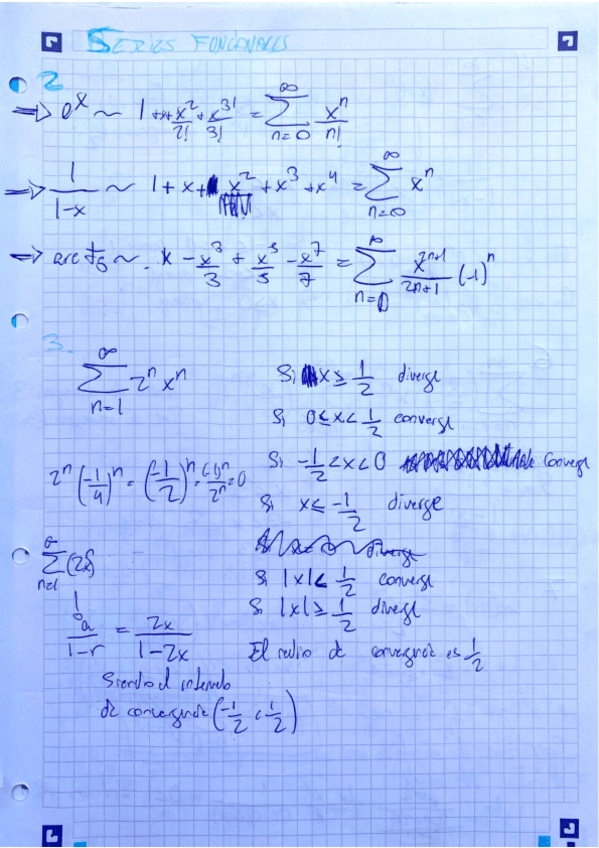 SERIES FUNCIONALES
2
⇒ e^x ~ 1+x+x²/2!+x^3/3! = ∑_{n=0}^{∞} x^n/n!
⇒ 1/(1-x) ~ 1+x+x²+x³+x⁴ = ∑_{n=0}^{∞} x^n
⇒ arc tg ~ x - x³/3 + x⁵/5 - x⁷/7 = ∑_{n=0}^{∞} x^{2n+1}/(2n+1) (-1)^n
3.
∑_{n=1}^{∞} 2^n x^n
Si x ≥ 1/2 diverge
Si 0 ≤ x < 1/2 converge
Si -1/2 < x < 0 converge
2^n (-1/4)^n = (-1/2)^n = (-1)^n/2^n = 0
Si x ≤ -1/2 diverge
∑_{n=1}^{∞} (2x)^n
Si |x| < 1/2 converge
Si |x| ≥ 1/2 diverge
a/(1-r) = 2x/(1-2x)
El radio de convergencia es 1/2
Siendo el intervalo
de convergencia (-1/2, 1/2)